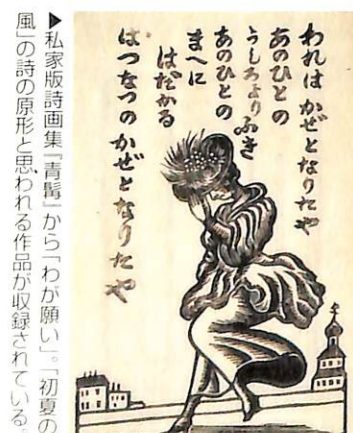 われは かぜと なりたや
あのひとの
うしろより ふき
あのひとの
まへに
はだかる
はつなつの かぜと なりたや
▶私家版詩画集『青髯』から「わが願い」。「初夏の
風」の詩の原形と思われる作品が収録されている。